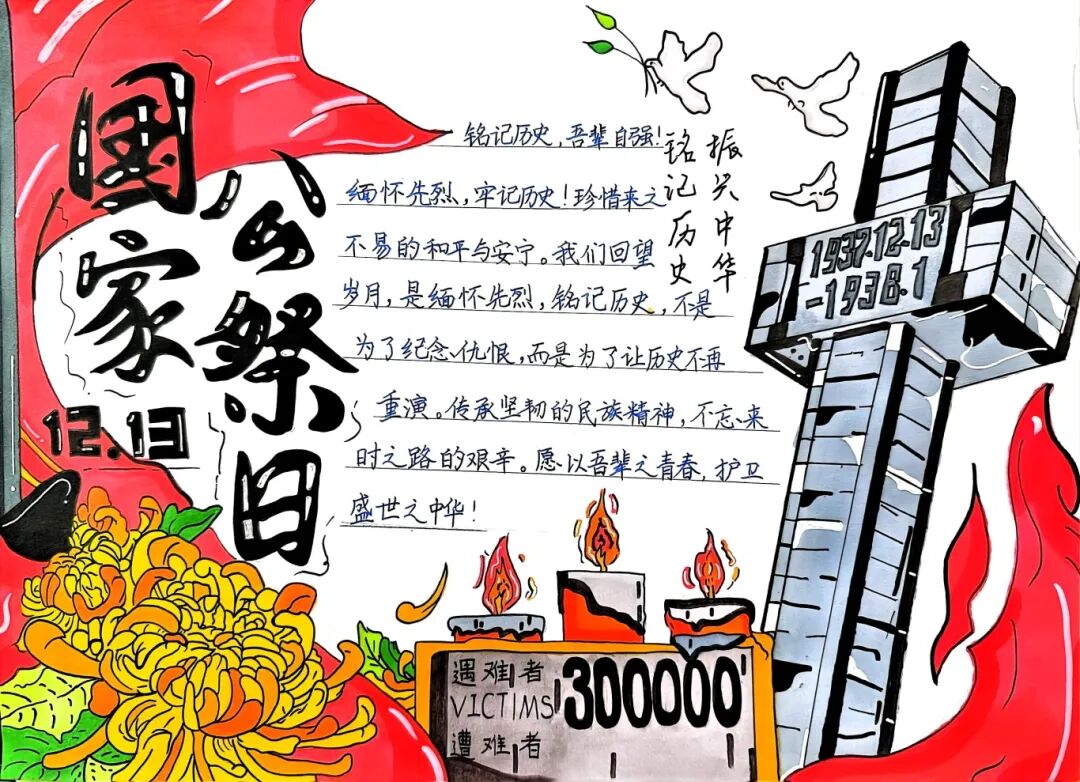 國家
公祭日
12.13
铭记历史,吾辈自强!
缅怀先烈,牢记历史!珍惜来之
不易的和平与安宁。我们回望
岁月,是缅怀先烈,铭记历史,不是
为了纪念仇恨,而是为了让历史不再
重演。传承坚韧的民族精神,不忘来
时之路的艰辛。愿以吾辈之青春,护卫
盛世之中华!
振兴中华
铭记历史
1937.12.13
-1938.1
遇难者
VICTIMS
遭难者
300000